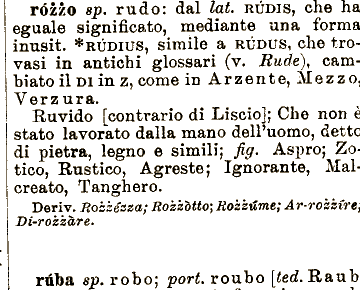 różżo sp. rudo: dal lat. RÚDIS, che ha
eguale significato, mediante una forma
inusit. *RÚDIUS, simile a RÚDUS, che tro-
vasi in antichi glossari (v. Rude), cam-
biato il DI in Z, come in Arzente, Mezzo,
Verzura.
Ruvido [contrario di Liscio]; Che non è
stato lavorato dalla mano dell'uomo, detto
di pietra, legno e simili; fig. Aspro; Zo-
tico, Rustico, Agreste; Ignorante, Mal-
creato, Tanghero.
Deriv. Rożżézza; Rożżòtto; Rożżúme; Ar-rożżíre;
Di-rożżàre.
rúba sp. robo; port. roubo [ted. Raub